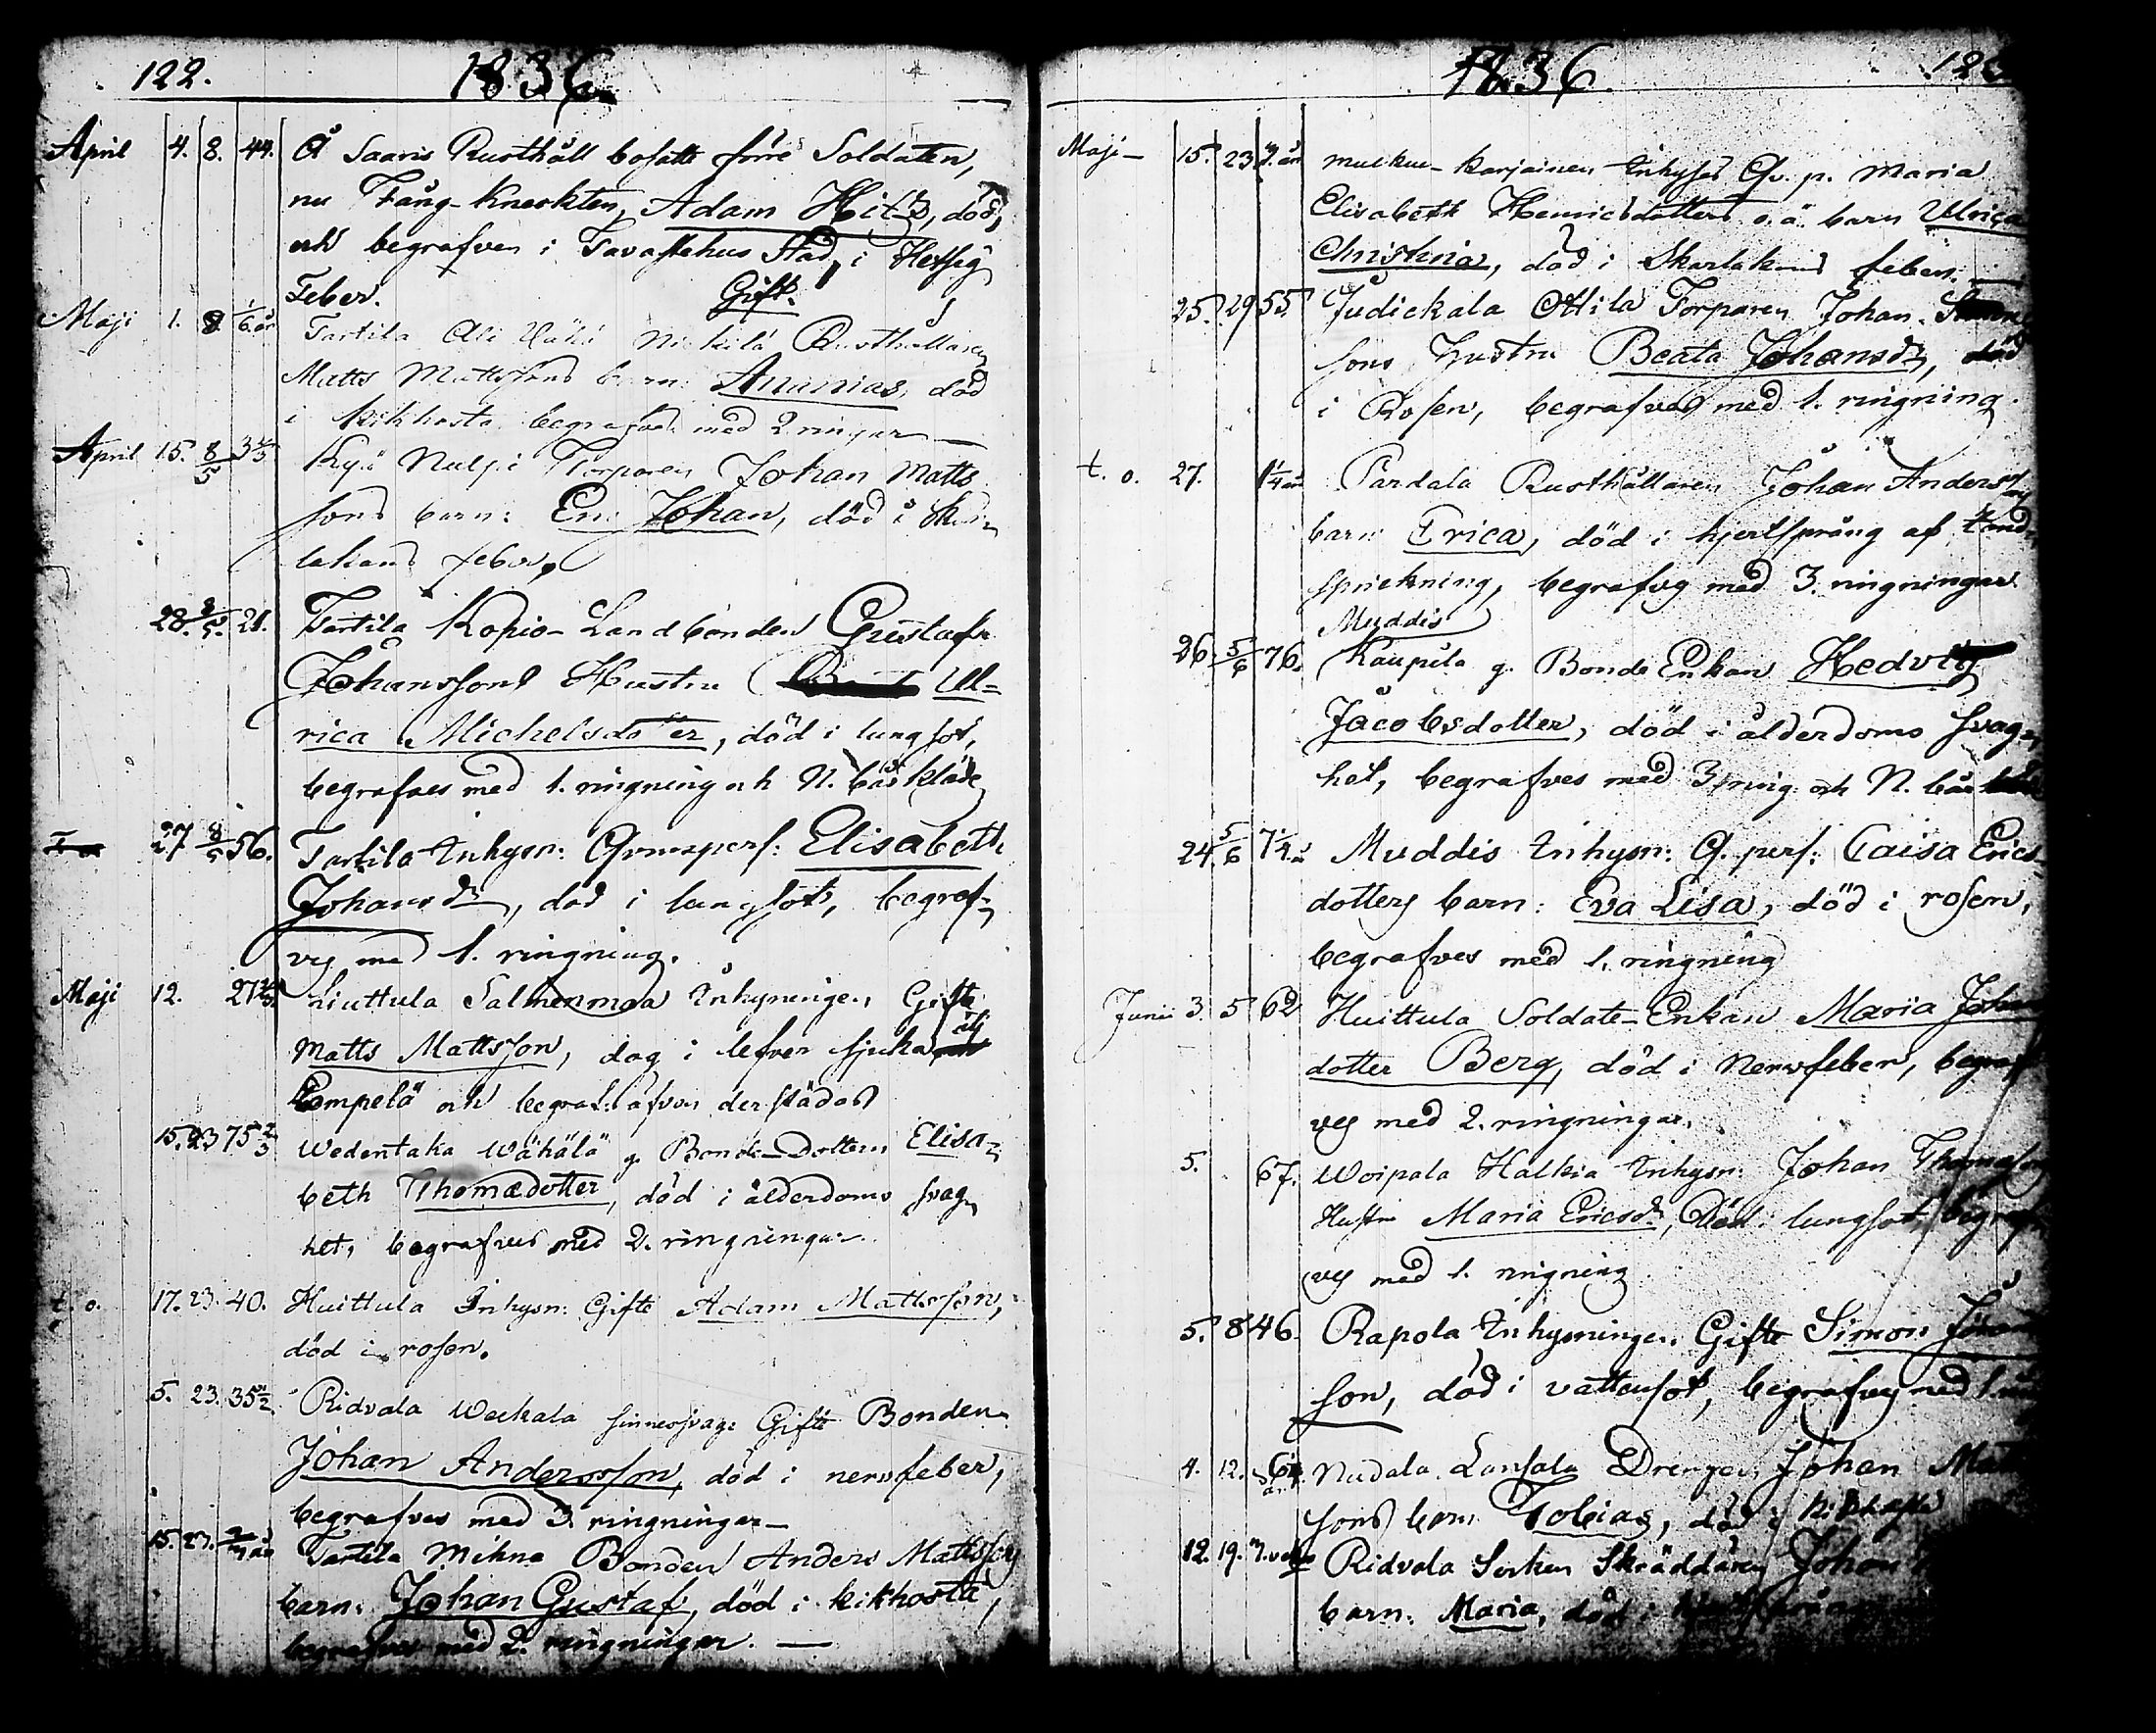 122. 1836.
April 4. 8. 44. Å Saaris Rusthåll bosatte förre Soldaten,
nu Fång-Kneckten, Adam Hitz, död,
och begrafven i Tavastehus Stad, i Hetsig
Feber. Gift.
Maji 1. 8. 1/6 år Tartila Ali Nickilä Rusthållaren
Matts Mattssons barn: Ananias, död
i kikhosta begrafves med 2 ringar
April 15. 8/5 3 Torparen Johan Matts
sons barn: Johan, död i Skar-
lakans feber,
28. 8/5. 21. Tartila Kopio-Landbonden Gustaf
Johanssons Hustru Ul-
rica Michelsdotter, död i lungsot,
begrafves med 1. ringning och N. bårkläde
27 8/5 56. Tartila Inhysn: Qvinspers: Elisabeth
Johansdr, död i lungsot, begraf-
ves med 1. ringning.
Maji 12. 27 Huittula Salmenmaa Inhysningen, Gifte
Matts Mattsson, dog i lefver sjuka i
Lempelä och begrafven derstädes
15. 23 75 2/3 Wedentaka Wähälä g. Bonde-Dottern Elisa-
beth Thomædotter, död i ålderdoms svag-
het, begrafves med 2. ringningar.
t. o. 17. 23. 40. Huittula Inhysn: Gifte Adam Mattsson,
död i rosen.
5. 23. 35 1/2 Ridvala Weckala sinnessvage Gifte Bonden
Johan Andersson, död i nervfeber,
begrafves med 3. ringningar—
15. 23. Tartila Mihna Bonden Anders Mattssons
barn: Johan Gustaf, död i kikhosta,
begrafves med 2. ringningar. —
1836. 12
Maji— 15. 23 år karjainen Inhyses Qv. p. Maria
Elisabeth Henricsdotters o. ä. barn Ulrica
Christina, död i Skarlakans feber. —
25. 29 55 Judickala Ottila Torparen Johan
sons hustru Beata Johansdr, död
i Rosen, begrafves med 1. ringning.
t. o. 27. 1/4 år Pardala Rusthållaren Johan Anderssons
barn Erica, död i hjertsprång af tand-
sprickning, begrafves med 3. ringningar
Muddis
26. 5/6 76. Kaupila g. Bonde Enkan Hedvig
Jacobsdotter, död i ålderdoms svag-
het, begrafves med 3 ring. och N. bår
24. 5/6 Muddis Inhysn: Q. pers: Caisa Erics-
dotters barn: Eva Lisa, död i rosen,
begrafves med 1. ringning
Junii 3. 5 62 Huittula Soldate-Enkan Maria Johans
dotter Berg, död i Nervfeber, begraf
ves med 2. ringningar.
5. 67. Woipala Halkia Inhysn: Johan Thomasson
Hustru Maria Ericsdr, Död i lungsot, begraf
ves med 1. ringning
5. 8 46. Rapola Inhysningen, Gifte Simon Johans
son, död i vattusot, begrafves med 1.
4. 12. Nudala Lansala Drengen Johan Matts
sons barn Tobias, död i kikhosta
12. 19. 7. veckor Ridvala Serken Skräddaren Johan
barn: Maria, död i